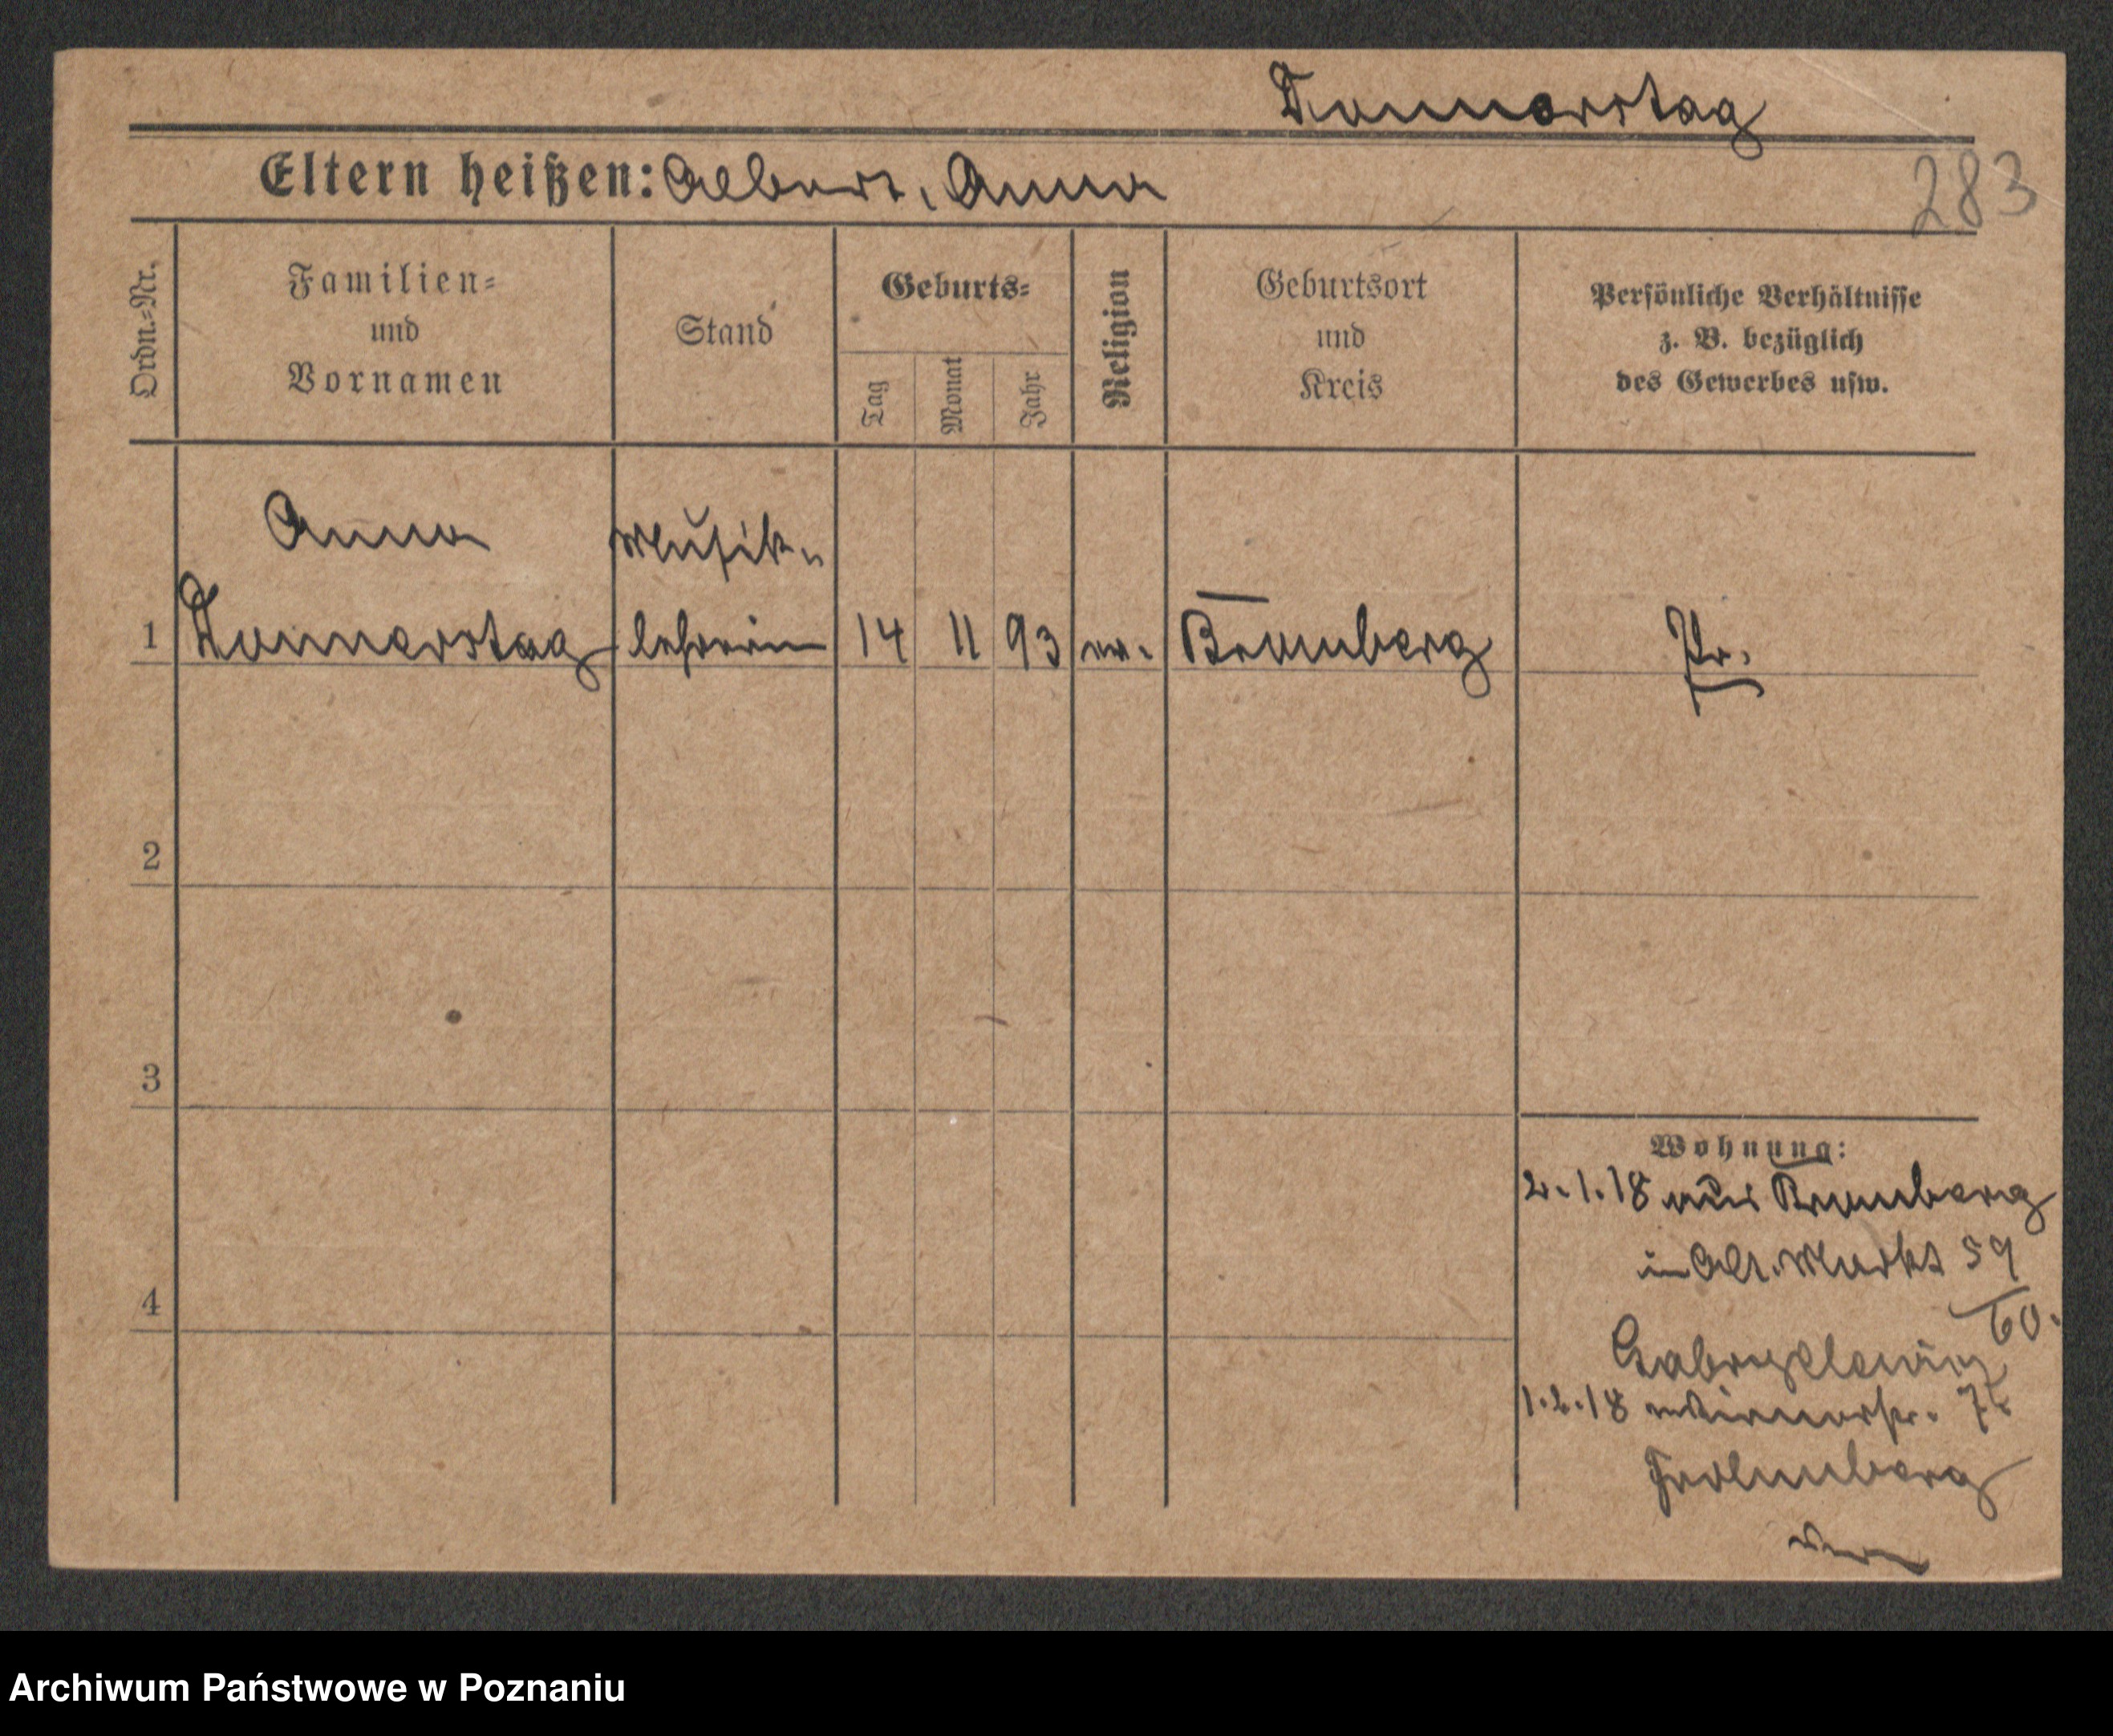 Donnerstag
Eltern heißen: Albert, Anna
283
Ordn.=Nr.
Familien=
und
Vornamen
Stand
Geburts=
Tag
Monat
Jahr
Religion
Geburtsort
und
Kreis
Persönliche Verhältnisse
z. B. bezüglich
des Gewerbes usw.
Anna Musik-
1 Donnerstag lehrerin 14 11 93 ev. Bromberg Pr.
2
3
4
Wohnung:
2.1.18 aus Bromberg
in Alt. Markt 59
60.
Gabryelewicz
1.2.18
Archiwum Państwowe w Poznaniu